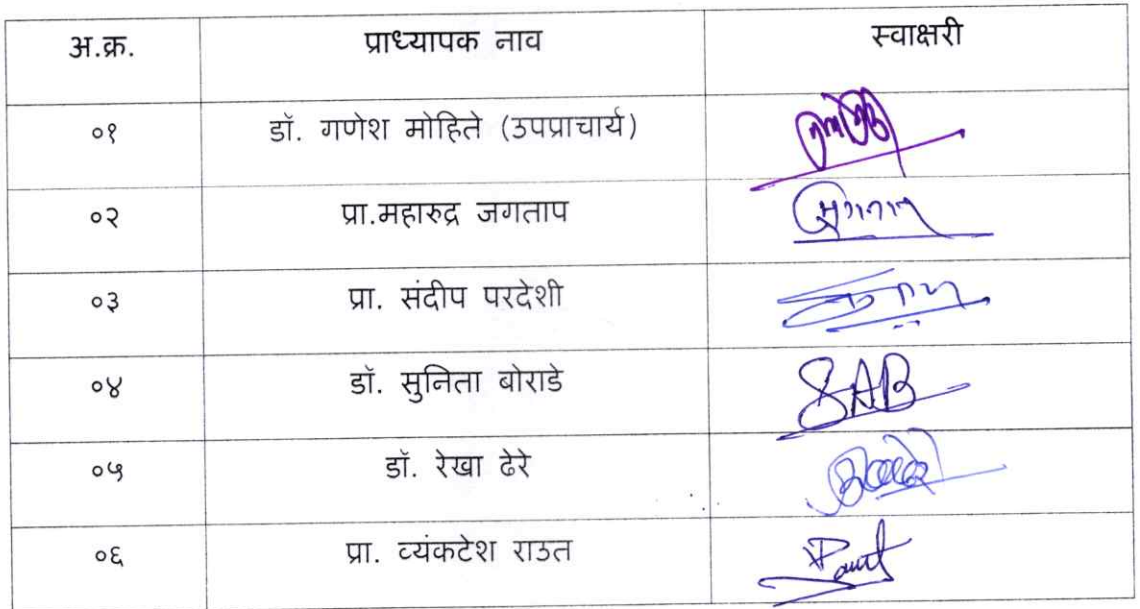 अ.क्र. प्राध्यापक नाव स्वाक्षरी
०१ डॉ. गणेश मोहिते (उपप्राचार्य)
०२ प्रा.महारुद्र जगताप
०३ प्रा. संदीप परदेशी
०४ डॉ. सुनिता बोराडे SAB
०५ डॉ. रेखा ढेरे
०६ प्रा. व्यंकटेश राऊत